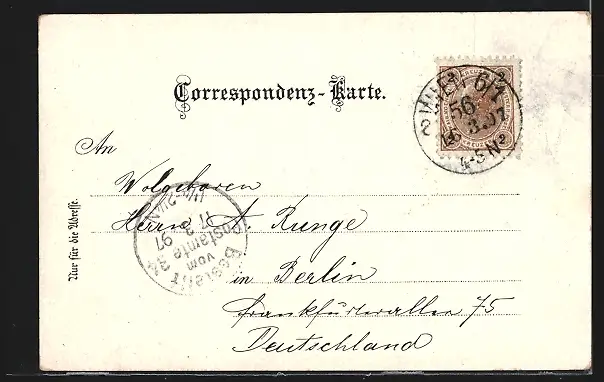 Correspondenz-Karte.
An
Wolgeboren
Herrn A Runge
in Berlin
Frankfurterallee 75
Deutschland
Nur für die Adresse.
WIEN 6/1
56
3.97
4-5 N
Bestellt
vom
Postamte 34
17 3 97